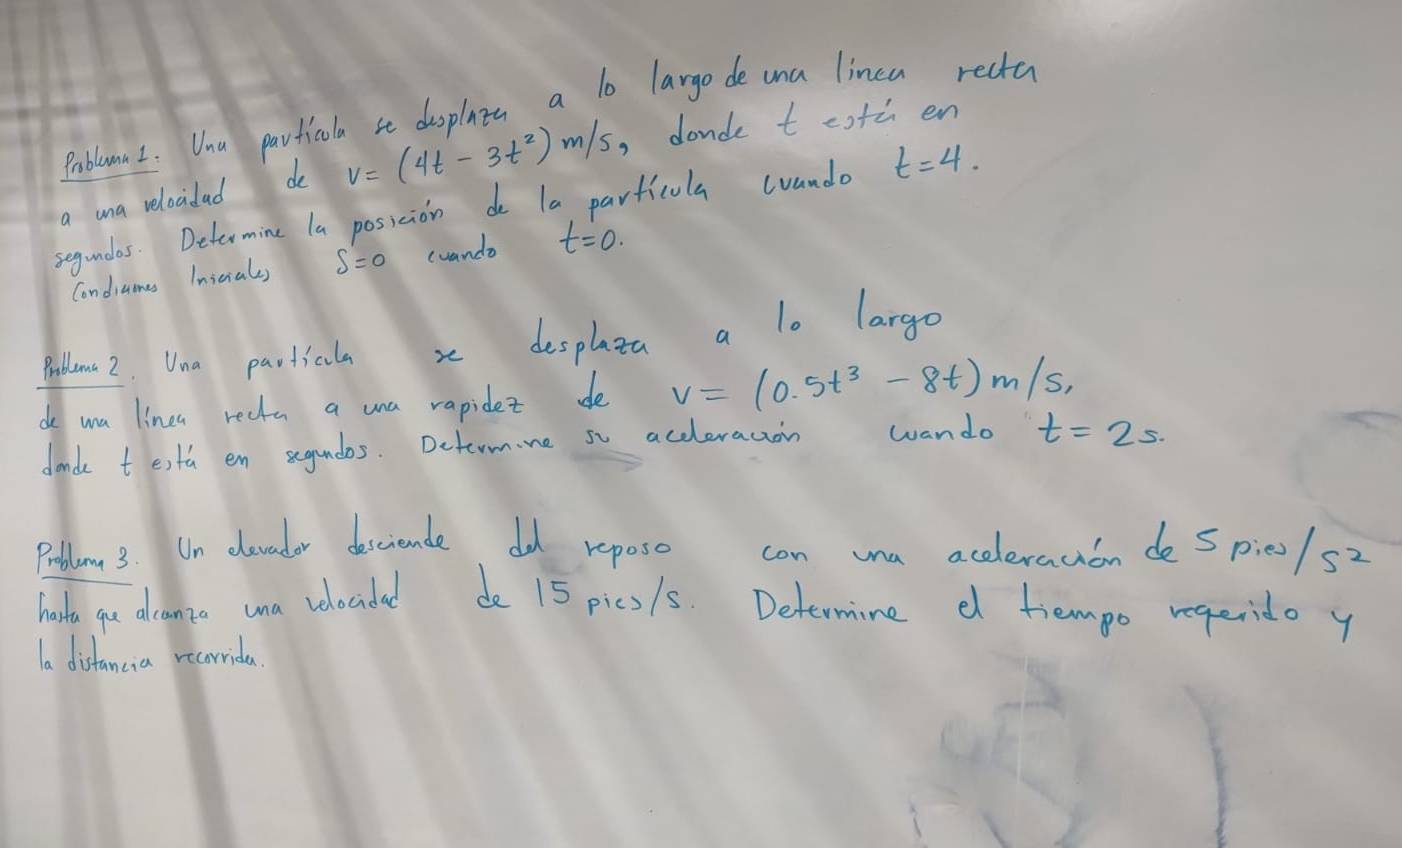 Problema 1. Una partícula se desplaza a lo largo de una línea recta
a una velocidad de v = (4t - 3t²) m/s, donde t está en
segundos. Determine la posición de la partícula cuando t=4.
Condiciones Iniciales S=0 cuando t=0.
Problema 2. Una partícula se desplaza a lo largo
de una línea recta a una rapidez de v = (0.5t³ - 8t) m/s,
donde t está en segundos. Determine su aceleración cuando t = 2s.
Problema 3. Un elevador desciende del reposo con una aceleración de 5 pies/s²
hasta que alcanza una velocidad de 15 pies/s. Determine el tiempo requerido y
la distancia recorrida.